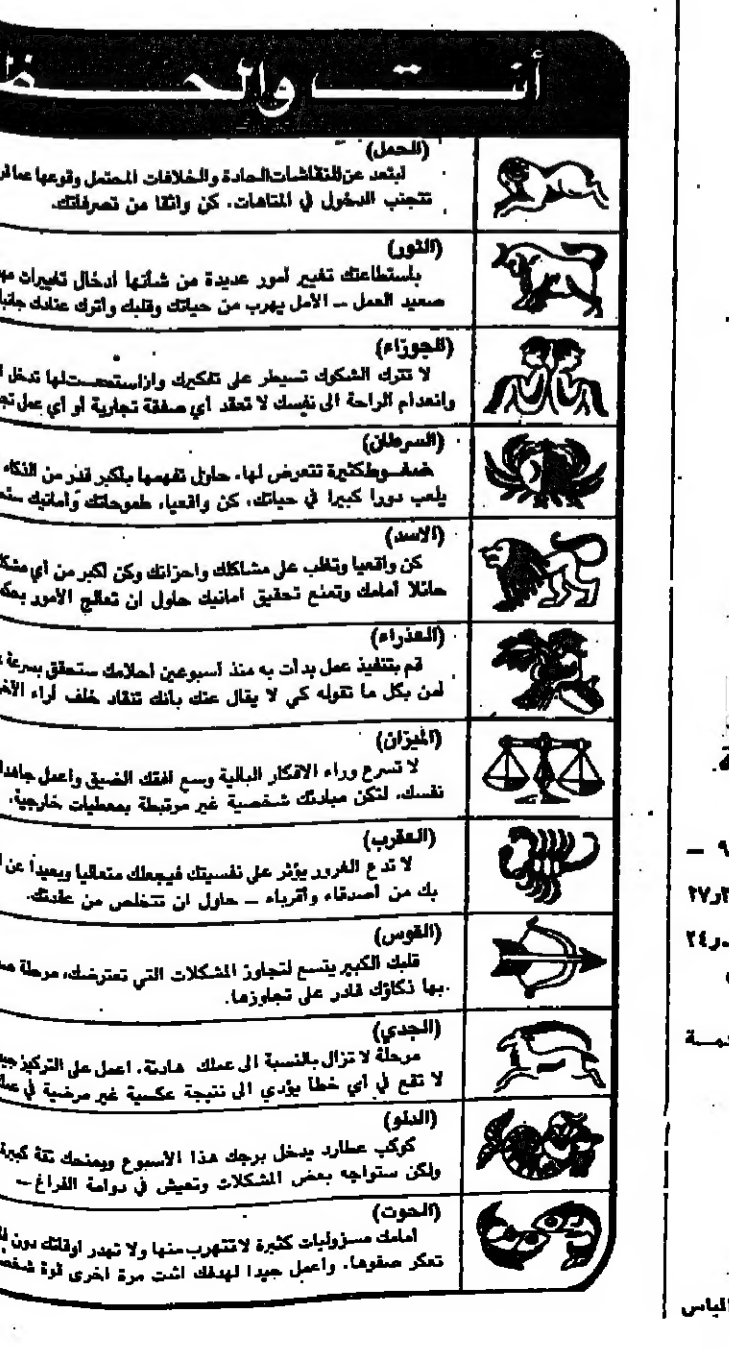 أنت والحظ
(الحمل)
ابتعد عن النقاشات الحادة والخلافات المحتمل وقوعها
تتجنب الدخول في المتاهات. كن واثقا من تصرفاتك.
(الثور)
باستطاعتك تغيير أمور عديدة من شأنها ادخال تغييرات
صعيد العمل — الأمل يهرب من حياتك وقلبك وأترك عنادك جانبا
(الجوزاء)
لا تترك الشكوك تسيطر على تفكيرك لها تدخل
وانعدام الراحة الى نفسك لا تعقد أي صفقة تجارية او أي عمل
(السرطان)
ضغوط كثيرة تتعرض لها، حاول تفهمها بأكبر قدر من الذكاء
يلعب دورا كبيرا في حياتك، كن واقعيا، طموحاتك وأمانيك
(الاسد)
كن واقعيا وتغلب على مشاكلك واحزانك وكن اكبر من أي
حائلا أمامك وتمنع تحقيق امانيك حاول ان تعالج الأمور
(العذراء)
قم بتنفيذ عمل بدأت به منذ أسبوعين أحلامك ستحقق بسرعة
أمن بكل ما تقوله كي لا يقال عنك بأنك تنقاد خلف أراء
(الميزان)
لا تسرع وراء الافكار البالية وسع افقك الضيق واعمل جاهدا
نفسك، لتكن مبادئك شخصية غير مرتبطة بمعطيات خارجية.
(العقرب)
لا تدع الغرور يؤثر على نفسيتك فيجعلك متعاليا وبعيداً عن
بك من أصدقاء وأقرباء — حاول ان تتخلص من عقدتك.
(القوس)
قلبك الكبير يتسع لتجاوز المشكلات التي تعترضك، مرحلة
بها ذكاؤك قادر على تجاوزها.
(الجدي)
مرحلة لا تزال بالنسبة الى عملك هادئة، اعمل على التركيز
لا تقع في أي خطأ يؤدي الى نتيجة عكسية غير مرضية في
(الدلو)
كوكب عطارد يدخل برجك هذا الأسبوع ويمنحك ثقة كبيرة
ولكن ستواجه بعض المشكلات وتعيش في دوامة الفراغ —
(الحوت)
أمامك مسؤوليات كثيرة لا تتهرب منها ولا تهدر اوقاتك دون
تعكر صفوها. واعمل جيدا لهدفك اثبت مرة اخرى قوة
٩ —
٢٧
٢٤